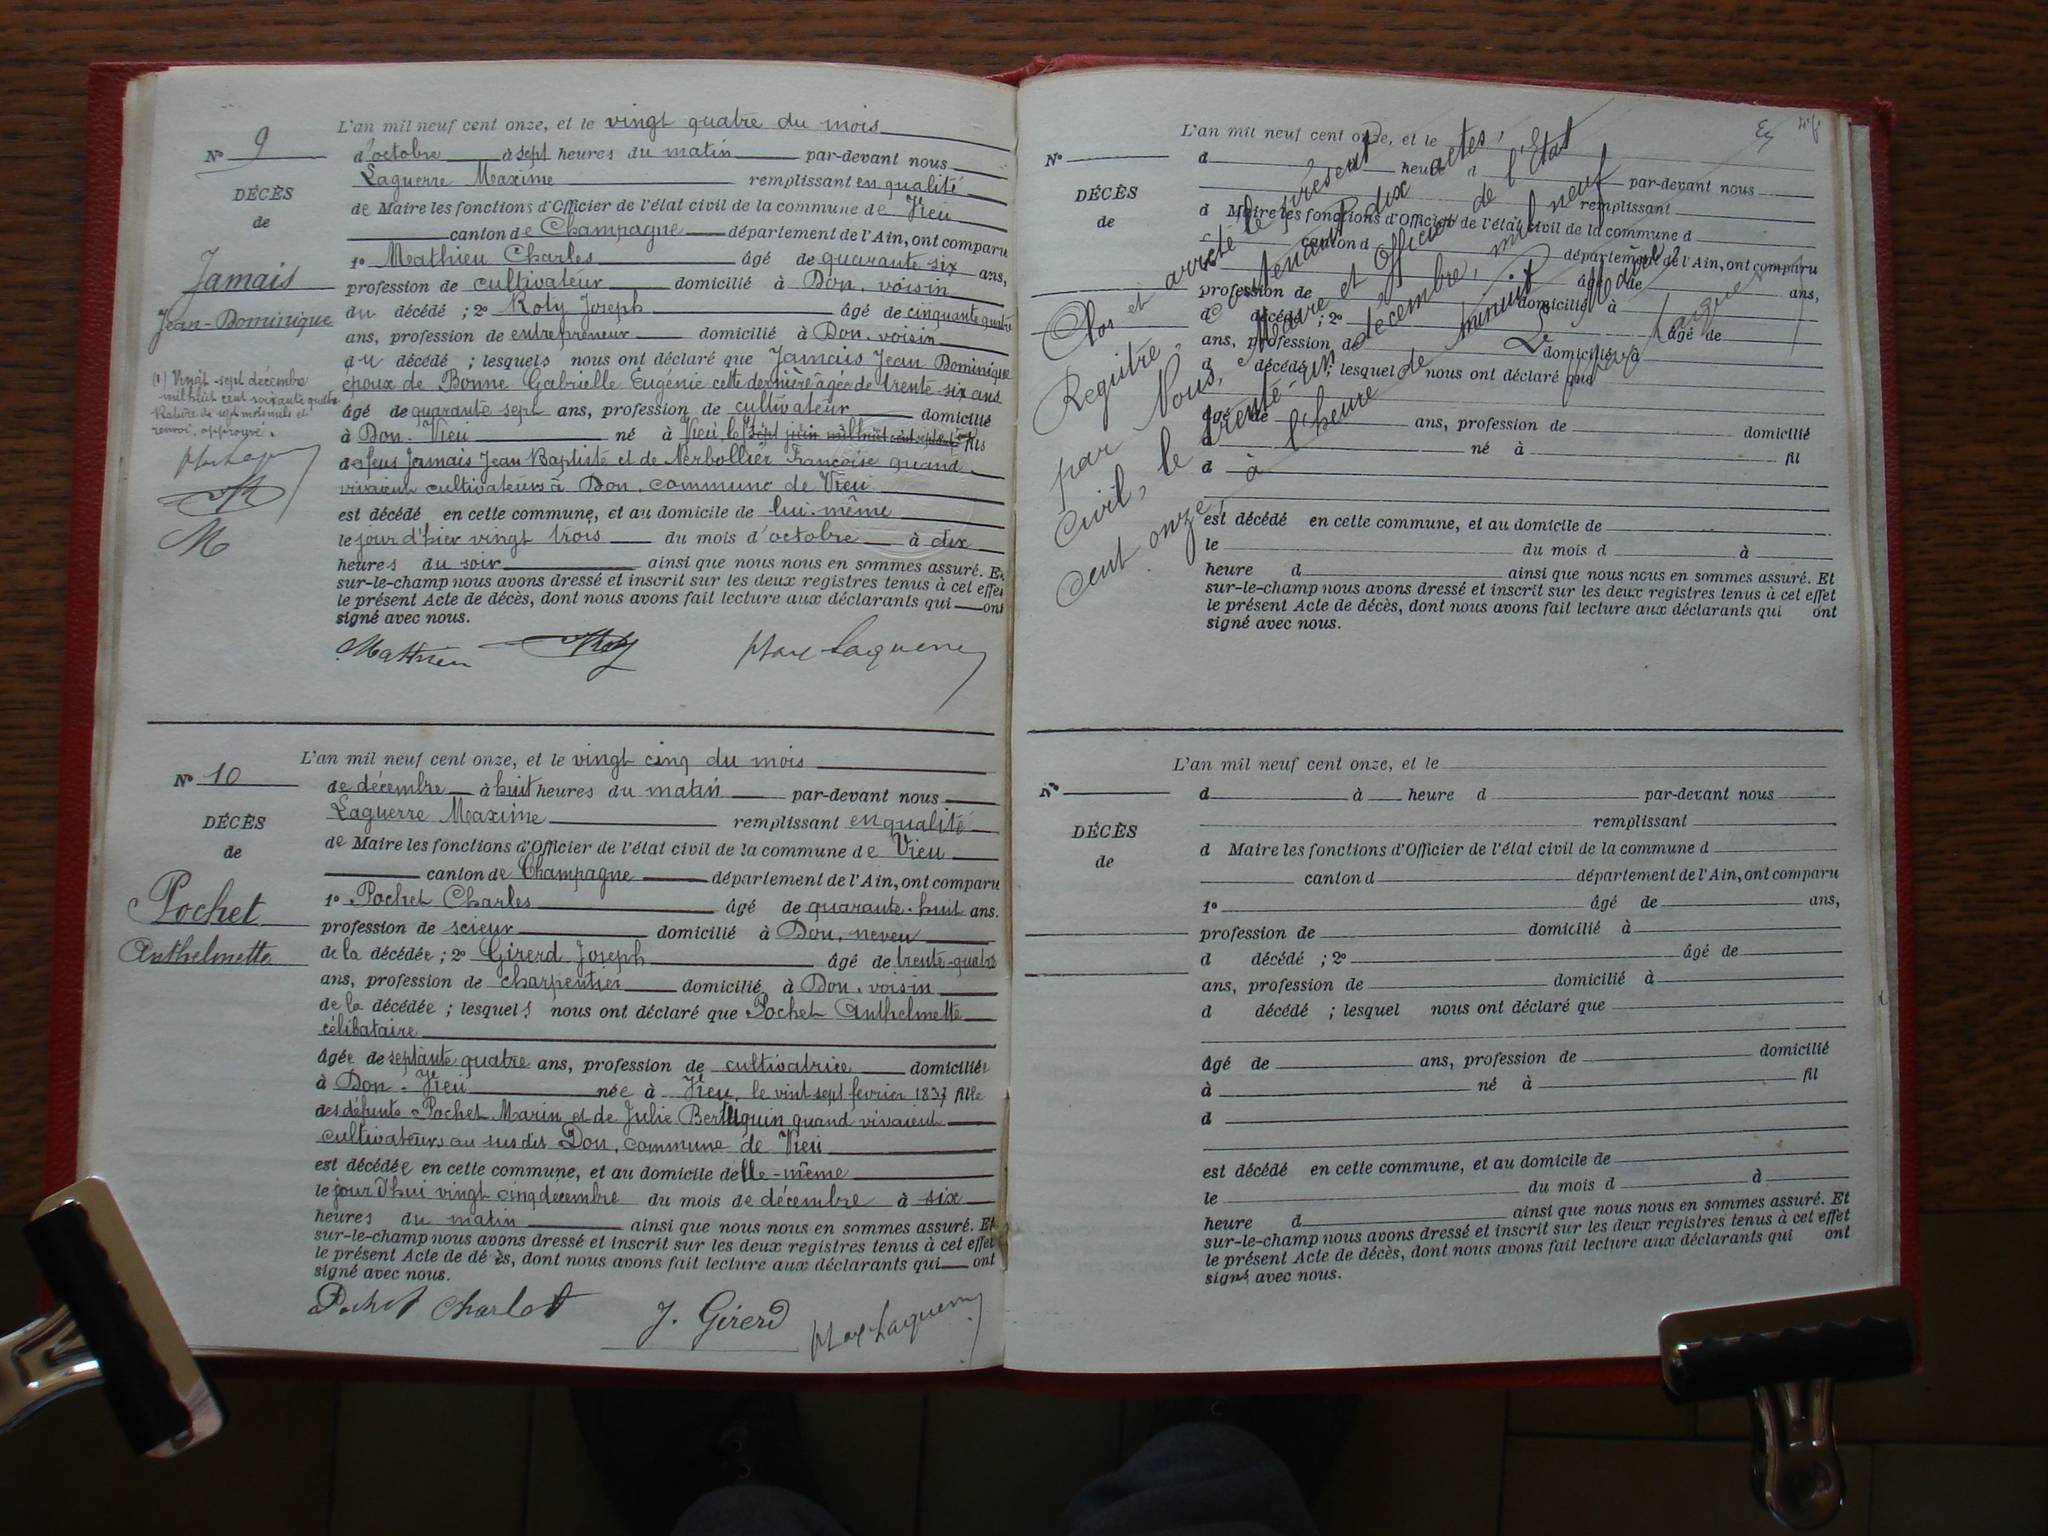 L'an mil neuf cent onze, et le vingt quatre du mois
N° 9
d'octobre à sept heures du matin par-devant nous
Laguerre Maxime remplissant en qualité
DÉCÈS
de Maire les fonctions d'Officier de l'état civil de la commune de Vieu
de
canton de Champagne département de l'Ain, ont comparu
1° Mathieu Charles âgé de quarante six ans,
Jamais
profession de cultivateur domicilié à Don, voisin
Jean-Dominique
du décédé ; 2° Roty Joseph âgé de cinquante quatre
ans, profession de entrepreneur domicilié à Don, voisin
du décédé ; lesquels nous ont déclaré que Jamais Jean Dominique
époux de Bonne Gabrielle Eugénie cette dernière âgée de trente-six ans
âgé de quarante sept ans, profession de cultivateur domicilié
à Don-Vieu né à Vieu, le sept juin mil huit cent fils
de feus Jamais Jean Baptiste et de Nerbollier Françoise quand
vivaient cultivateurs à Don, commune de Vieu
est décédé en cette commune, et au domicile de lui-même
le jour d'hier vingt trois du mois d'octobre à dix
heures du soir ainsi que nous nous en sommes assuré. Et
sur-le-champ nous avons dressé et inscrit sur les deux registres tenus à cet effet
le présent Acte de décès, dont nous avons fait lecture aux déclarants qui ont
signé avec nous.
(1) Vingt-sept décembre
mil huit cent soixante quatre
Rature de sept mots nuls et
renvoi, approuvé.
M
Mathieu Roty Max Laguerre
L'an mil neuf cent onze, et le vingt cinq du mois
N° 10
de décembre à huit heures du matin par-devant nous
Laguerre Maxime remplissant en qualité
DÉCÈS
de Maire les fonctions d'Officier de l'état civil de la commune de Vieu
de
canton de Champagne département de l'Ain, ont comparu
1° Pochet Charles âgé de quarante-huit ans.
Pochet
profession de scieur domicilié à Don, neveu
Anthelmette
de la décédée ; 2° Girerd Joseph âgé de trente-quatre
ans, profession de charpentier domicilié à Don, voisin
de la décédée ; lesquels nous ont déclaré que Pochet Anthelmette
célibataire
âgée de septante quatre ans, profession de cultivatrice domiciliée
à Don-Vieu née à Vieu, le vint sept fevrier 1837 fille
des défunts Pochet Marin et de Julie Bertuquin quand vivaient
cultivateurs au susdit Don, commune de Vieu
est décédée en cette commune, et au domicile delle-même
le jour d'hui vingt cinq décembre du mois de décembre à six
heures du matin ainsi que nous nous en sommes assuré. Et
sur-le-champ nous avons dressé et inscrit sur les deux registres tenus à cet effet
le présent Acte de dé ès, dont nous avons fait lecture aux déclarants qui ont
signé avec nous.
Pochet Charlot J. Girerd Max Laguerre
L'an mil neuf cent onze, et le
N°
d heure d par-devant nous
remplissant
DÉCÈS
d Maire les fonctions d'Officier de l'état civil de la commune d
de
canton d département de l'Ain, ont comparu
1° âgé de ans,
profession de domicilié à
d décédé ; 2° âgé de
ans, profession de domicilié à
d décédé ; lesquel nous ont déclaré que
âgé de ans, profession de domicilié
à né à fil
d
est décédé en cette commune, et au domicile de
le du mois d à
heure d ainsi que nous nous en sommes assuré. Et
sur-le-champ nous avons dressé et inscrit sur les deux registres tenus à cet effet
le présent Acte de décès, dont nous avons fait lecture aux déclarants qui ont
signé avec nous.
Clos et arrêté le présent
Registre, contenant dix actes,
par Nous, Maire et Officier de l'Etat
Civil, le trente-un décembre, mil neuf
cent onze, à l'heure de minuit.
Le Maire
Max Laguerre
L'an mil neuf cent onze, et le
N°
d à heure d par-devant nous
remplissant
DÉCÈS
d Maire les fonctions d'Officier de l'état civil de la commune d
de
canton d département de l'Ain, ont comparu
1° âgé de ans,
profession de domicilié à
d décédé ; 2° âgé de
ans, profession de domicilié à
d décédé ; lesquel nous ont déclaré que
âgé de ans, profession de domicilié
à né à fil
d
est décédé en cette commune, et au domicile de
le du mois d à
heure d ainsi que nous nous en sommes assuré. Et
sur-le-champ nous avons dressé et inscrit sur les deux registres tenus à cet effet
le présent Acte de décès, dont nous avons fait lecture aux déclarants qui ont
signé avec nous.